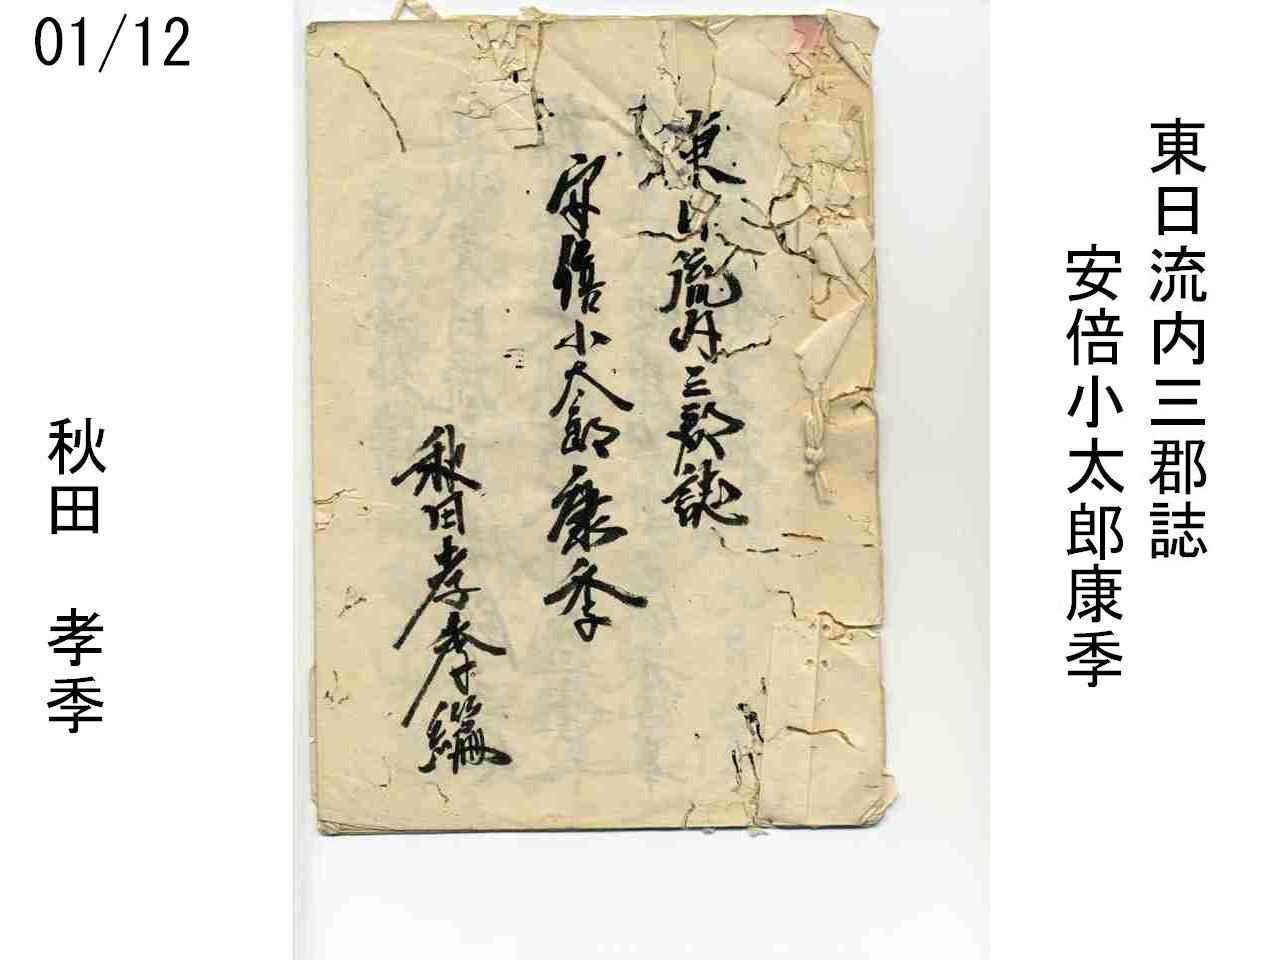 01/12
東日流内三郡誌
安倍小太郎康季
東日流内三郡誌
安倍小太郎康季
秋田孝季編
秋田 孝季